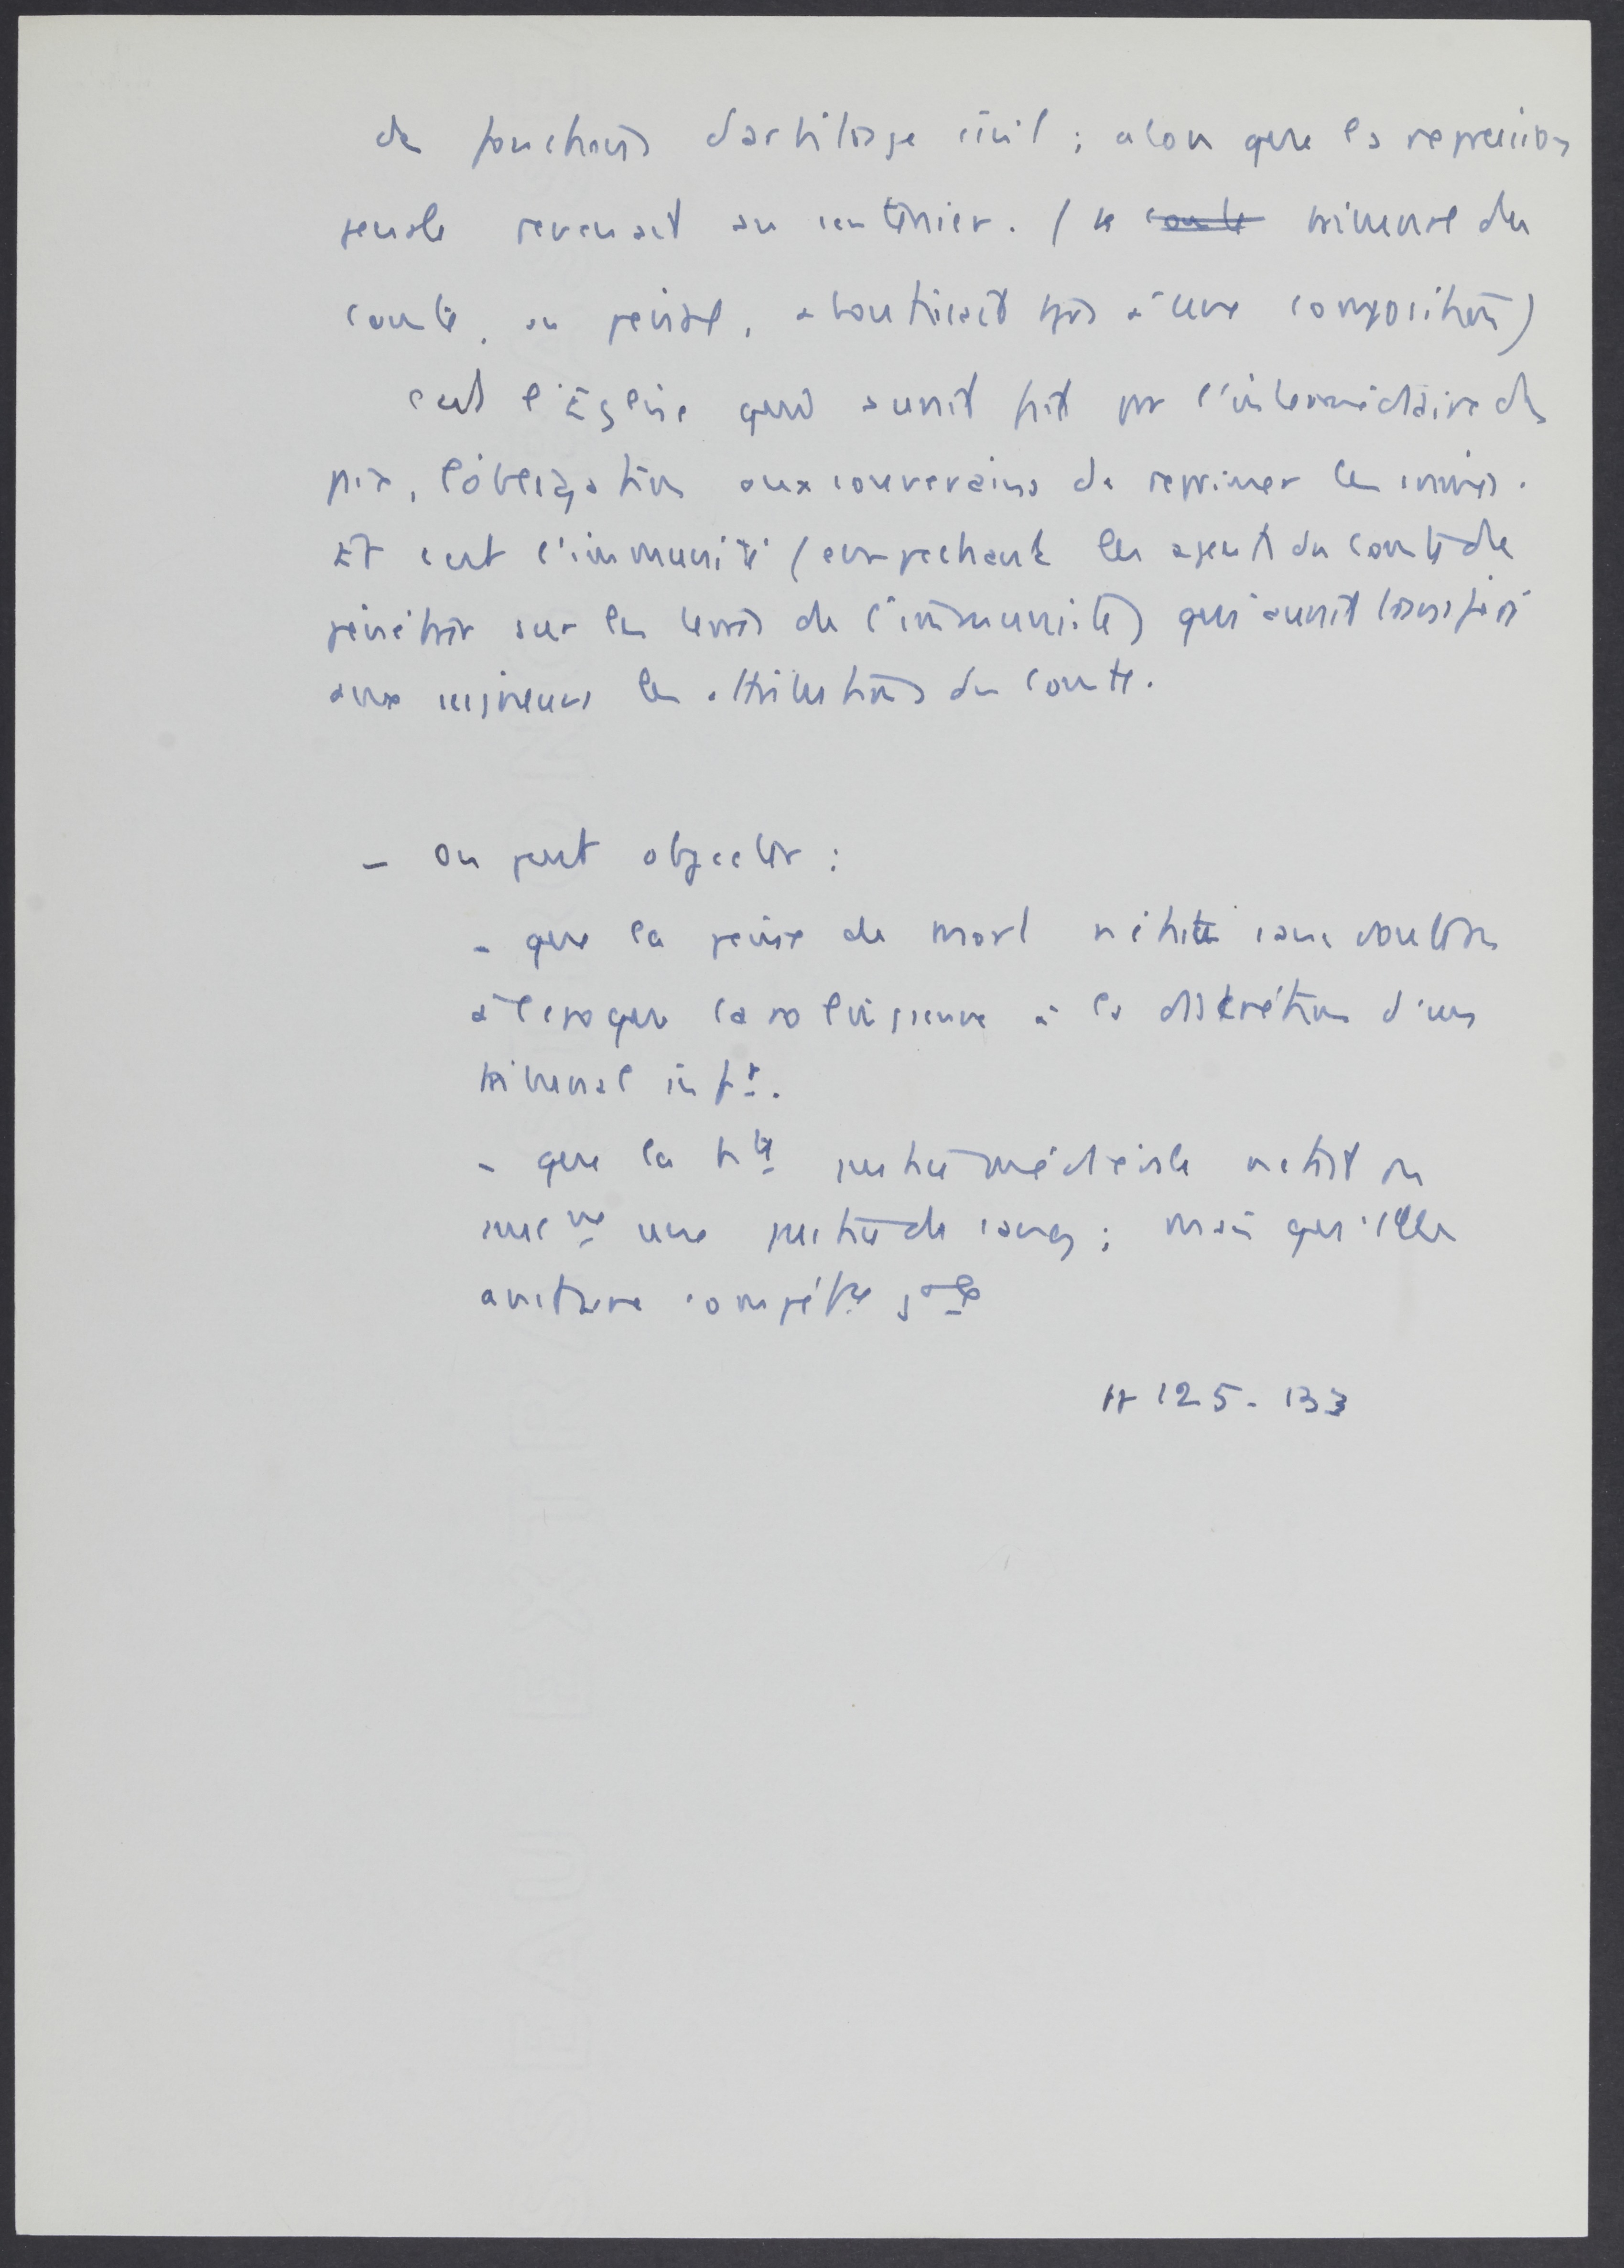 de fonctions d'arbitrage civil ; alors que la repression
penale revenait au centenier. (le comte tribunal du
comte, au penal, aboutissait tjrs à une composition)
c'est l'Eglise qui aurait fait par l'intermédiaire des
paix, l'obligation aux souverains de reprimer les crimes.
Et c'est l'immunité (empechant les agents du comte de
pénétrer sur les terres de l'immunité) qui aurait transféré
aux seigneurs les attributions du comte.
- on peut objecter :
- que la peine de mort n'était sans doute pas
à l'epoque carolingienne à la discrétion d'un
tribunal infr.
- que la hte justice médiévale n'etait pas
une justice de sang ; mais qu'elle
avait une compétce gale
pp 125-133